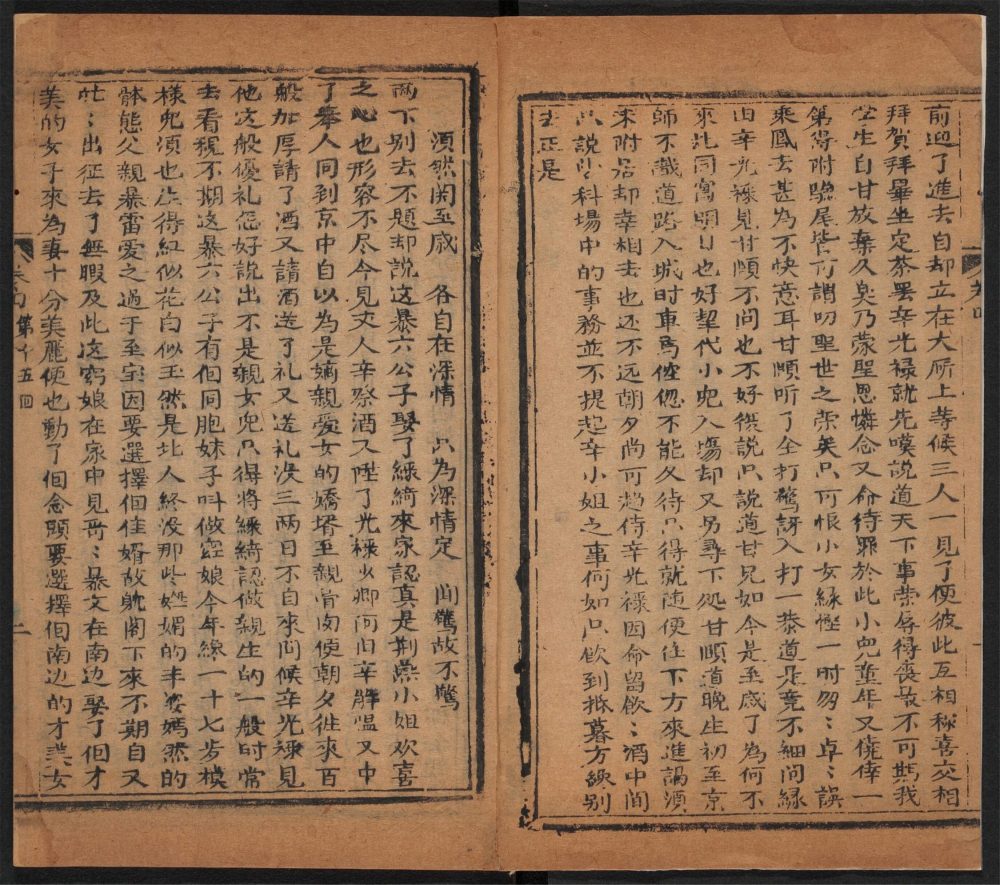 前迎了進去自却立在大廳上等候三人一見了便彼此互相称喜交相
拜賀拜畢坐定茶罷辛光禄就先嘆說道天下事荣辱得喪最不可期我
学生自甘放棄久矣乃蒙聖恩憐念又命待罪於此小兒童年又僥倖一
第得附驥尾皆可謂叨聖世之荣矣只可恨小女緣慳一时匆〻卓〻誤
乘鳳去甚為不快意耳甘頤听了全打驚訝入打一恭道是竟不細問緑
由辛光禄見甘頤不問也不好傑說只說道甘兄如今是至戚了為何不
來此同寓明日也好挈代小兒入塲却又另尋下処甘頤道晚生初至京
師不識道路入城时車馬倥偬不能久待只得就随便住下方來進謁須
來附居却幸相去也还不远朝夕尚可趋侍辛光禄因命留飲〻酒中間
只說些科場中的事務並不提起辛小姐之事何如只飲到抵暮方纔别
去正是
須然関至戚　各自在深情　只為深情定　闻驚故不驚
两下别去不題却說这暴六公子娶了綠綺來家認真是荆燕小姐欢喜
之心也形容不尽今見丈人辛祭酒又陞了光禄少卿阿旧辛解愠又中
了舉人同到京中自以為是嫡親愛女的嬌壻至親骨肉便朝夕徃來百
般加厚請了酒又請酒送了礼又送礼没三两日不自來问候辛光禄見
他这般優礼怎好說出不是親女兒只得將綠綺認做親生的一般时常
去看視不期这暴六公子有個同胞妹子叫做窕娘今年纔一十七步模
樣兒須也生得紅似花白似玉然是北人終没那些嬎媚的丰姿嫣然的
体態父親暴雷愛之過于至宝因要選擇個佳婿故躭阁下來不期自又
忙〻出征去了無暇及此这窕娘在家中見哥〻暴文在南边娶了個才
美的女子來為妻十分美麗便也動了個念頭要選擇個南边的才美女
卷四
卷四　第十五回
二